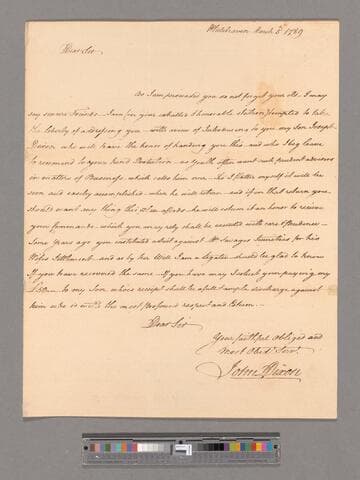 Whitehaven March 5th 1789
Dear Sir
As I am perswaded you do not forget your Old I may
say sincere Friends I am
the liberty of addressing you with view of Introducing to you my Son Joseph
Dixon who will have the honor of handing you this and who I beg leave
to recommend to your kind Protection as youth often want such prudent advisers
in matters of Business which calls him over he I flatter myself it will be
soon and easily accomplished when he will return and if on that return you
should want any thing this side he will return it an honor to receive
your Commands which you may rely shall be executed with care & Prudence
Some years ago you instituted a Suit against Mr Savages Securities for his
Wifes Settlement and as by her Will I am a legatee should be glad to know
If you have recovered the same If you have may I solicit your paying my
to my Son whose receipt shall be a full & ample discharge against
him who is with the most profound respect and Esteem
Dear Sir
Your faithful obliged and
most Obedt Servt
John Dixon